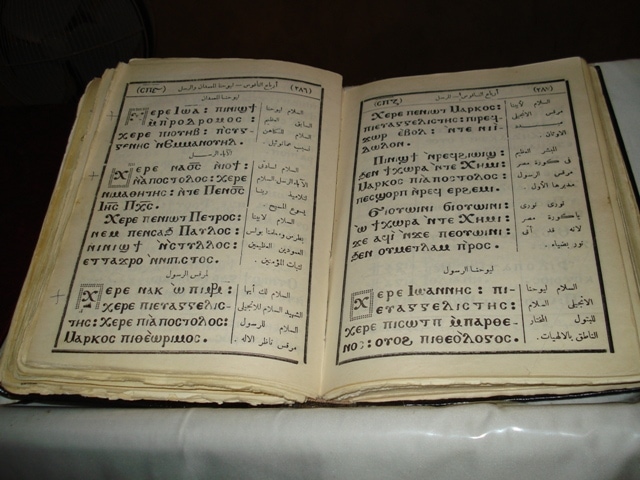 أرباع الناقوس – ليوحنا المعمدان والرسل (٢٨٦)
ليوحنا المعمدان
Ⲭⲉⲣⲉ Ⲓⲱⲁ̅: ⲡⲓⲛⲓϣϯ
ⲙ̀ⲡⲣⲟⲇⲣⲟⲙⲟⲥ:
ⲭⲉⲣⲉ ⲡⲓⲟⲩⲏⲃ: ⲡ̀ⲥⲩⲅ-
ⲅⲉⲛⲏⲥ ⲛ̀Ⲉⲙⲙⲁⲛⲟⲩⲏⲗ.
السلام ليوحنا
السابق العظيم
السلام للكاهن
نسيب عمانوئيل.
Ⲭⲉⲣⲉ ⲛⲁⲟ̅ⲥ̅ ⲛ̀ⲓⲟϯ
ⲛ̀ⲁⲡⲟⲥⲧⲟⲗⲟⲥ: ⲭⲉⲣⲉ
ⲛⲓⲙⲁⲑⲏⲧⲏⲥ: ⲛ̀ⲧⲉ Ⲡⲉⲛⲟ̅ⲥ̅
Ⲓⲏ̅ⲥ̅ Ⲡⲭ̅ⲥ̅.
السلام لسادتى
الآباء الرسل السلام
لتلاميذ ربنا
يسوع المسيح.
Ⲭⲉⲣⲉ ⲡⲉⲛⲓⲱⲧ Ⲡⲉⲧⲣⲟⲥ:
ⲛⲉⲙ ⲡⲉⲛⲥⲁϧ Ⲡⲁⲩⲗⲟⲥ:
ⲡⲓⲛⲓϣϯ ⲛ̀ⲥⲧⲩⲗⲗⲟⲥ:
ⲉⲧⲧⲁϫⲣⲟ ⲛ̀ⲛⲓⲡⲓⲥⲧⲟⲥ.
السلام لابينا
بطرس ومعلمنا بولس
العمودين العظيمين
لثبات المؤمنين.
لمرقس الرسول
Ⲭⲉⲣⲉ ⲛⲁⲕ ⲱ̀ ⲡⲓⲙ̅ⲣ̅:
ⲭⲉⲣⲉ ⲡⲓⲉⲩⲁⲅⲅⲉⲗⲓⲥ-
ⲧⲏⲥ: ⲭⲉⲣⲉ ⲡⲓⲁ̀ⲡⲟⲥⲧⲟⲗⲟⲥ:
Ⲙⲁⲣⲕⲟⲥ ⲡⲓⲑⲉⲱ̀ⲣⲓⲙⲟⲥ.
السلام لك أيها
الشهيد السلام للانجيلى
السلام للرسول
مرقس ناظر الاله.
أرباع الناقوس
Ⲭⲉⲣⲉ ⲡⲉⲛⲓⲱⲧ Ⲙⲁⲣⲕⲟⲥ:
ⲡⲓⲉⲩⲁⲅⲅⲉⲗⲓⲥⲧⲏⲥ: ⲡⲓⲣⲉϥ-
ϫⲱⲣ ⲉ̀ⲃⲟⲗ: ⲛ̀ⲧⲉ ⲛⲓⲓ̀-
ⲇⲱⲗⲟⲛ.
السلام لأبينا
مرقس الانجيلى
الاوثان.
Ⲡⲓⲛⲓϣϯ ⲛ̀ⲣⲉϥϩⲓⲱⲓϣ:
ϧⲉⲛ ϯⲭⲱⲣⲁ ⲛ̀ⲧⲉ Ⲭⲏⲙⲓ:
Ⲙⲁⲣⲕⲟⲥ ⲡⲓⲁ̀ⲡⲟⲥⲧⲟⲗⲟⲥ:
ⲡⲉⲥϣⲟⲣⲡ ⲛ̀ⲣⲉϥⲉⲣϩⲉⲙⲓ.
المبشر العظيم
فى كورة مصر
مرقس الرسول
مدبرها الأول.
Ϭⲓⲟⲩⲱⲓⲛⲓ ϭⲓⲟⲩⲱⲓⲛⲓ:
ⲱ̀ ϯⲭⲱⲣⲁ ⲛ̀ⲧⲉ Ⲭⲏⲙⲓ:
ϫⲉ ⲁϥⲓ̀ ⲛ̀ϫⲉ ⲡⲉⲟⲩⲱⲓⲛⲓ:
ϧⲉⲛ ⲟⲩⲙⲉⲧⲗⲁⲙ ⲡ̀ⲣⲟⲥ.
نورى نورى
ياكورة مصر
لانه قد أتى
نورك بضياء.
ليوحنا الرسول
Ⲭⲉⲣⲉ Ⲓⲱⲁⲛⲛⲏⲥ: ⲡⲓ-
ⲉⲩⲁⲅⲅⲉⲗⲓⲥⲧⲏⲥ:
ⲭⲉⲣⲉ ⲡⲓⲥⲱⲧⲡ ⲙ̀ⲡⲁⲣⲑⲉ-
ⲛⲟⲥ: ⲟⲩⲟϩ ⲡⲓⲑⲉⲟ̀ⲗⲟⲅⲟⲥ.
السلام ليوحنا
الانجيلى السلام
للبتول المختار
الناطق بالالهيات.